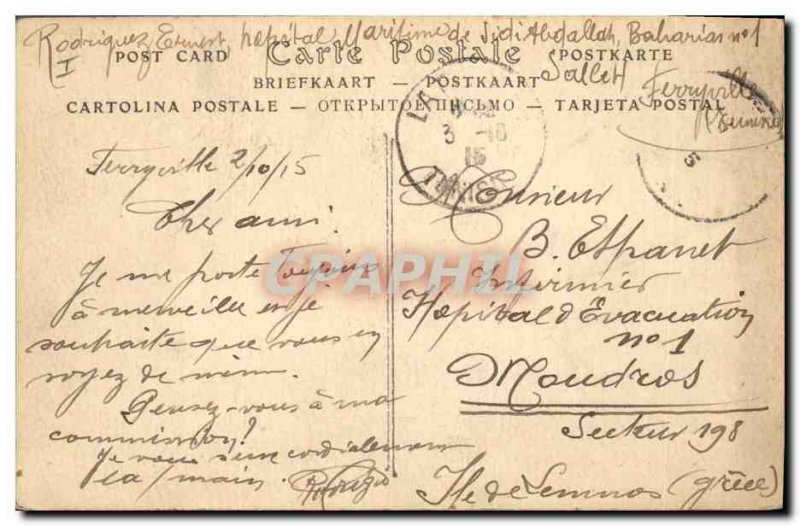 Rodriguez Ernest, hopital Maritime de Sidi Abdallah, Baharias no 1
I
Salle H
Ferryville
Carte Postale
POST CARD
POSTKARTE
BRIEFKAART — POSTKAART
CARTOLINA POSTALE — ОТКРЫТОЕ ПИСЬМО — TARJETA POSTAL
3 -10
15
Ferryville 2/10/15
Cher ami
Je me porte toujours
à merveille et je
souhaite que vous en
soyez de même.
Pensez-vous à ma
commission?
Je vous serre cordialement
la main.
Monsieur
B. Espanet
Infirmier
Hopital d'Evacuation
no 1
Moudros
Secteur 198
Ile de Lemnos (Grèce)
CPAPHIL